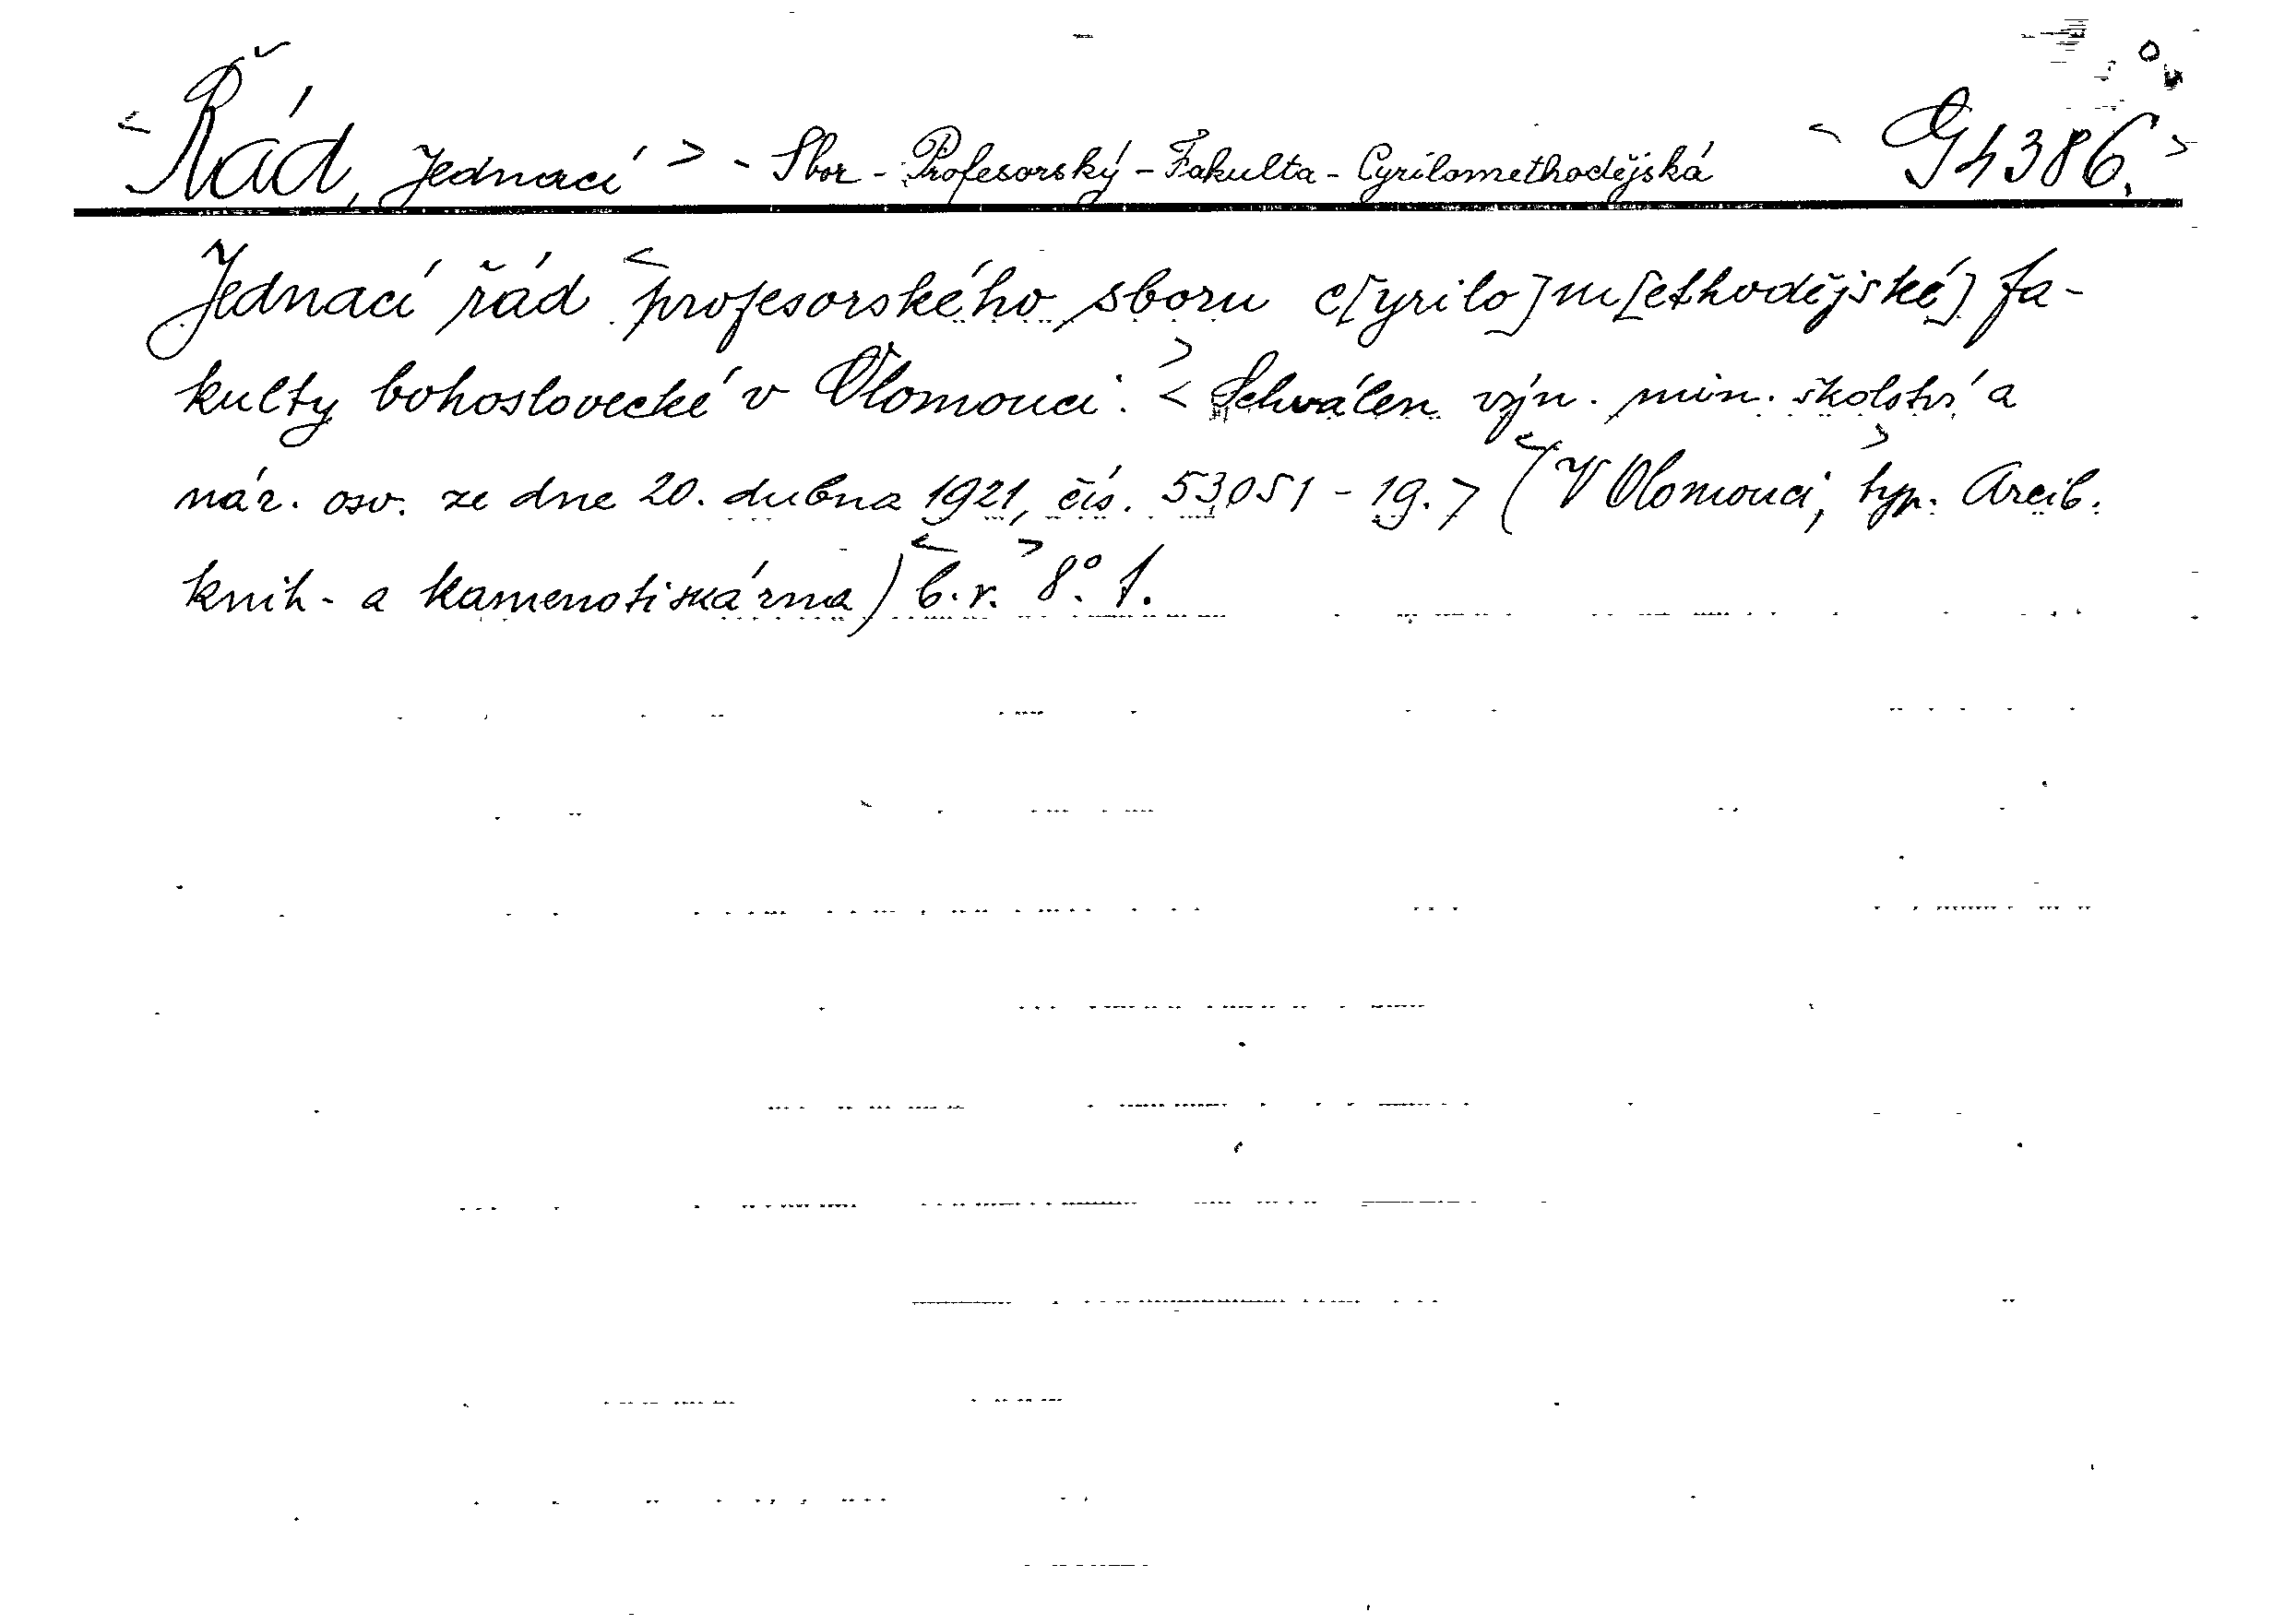 < Řád, Jednací > - Sbor - Profesorský - Fakulta - Cyrilomethodějská < G 4386. >
Jednací řád < profesorského sboru c[yrilo]m[ethodějské] fa-
kulty bohoslovecké v Olomouci. > < Schválen výn. min. školství a
nár. osv. ze dne 20. dubna 1921, čís. 53,051 - 19. > < (V Olomouci, > typ. Arcib.
knih- a kamenotiskárna) < b. r. > 8°. f.